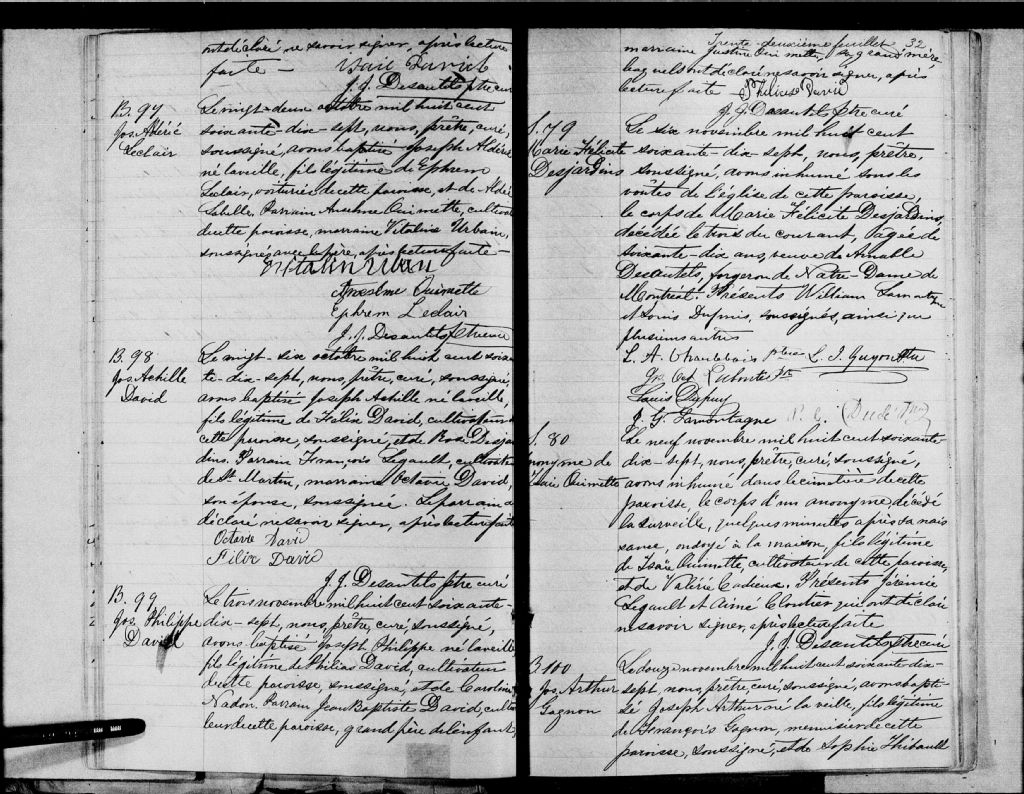 ont déclaré ne savoir signer, après lecture
faite — David
J. J. Desautels Ptre curé
B. 97
Jos. Aldéric
Leclair
Le vingt-deux octobre mil huit cent
soixante-dix-sept, nous, prêtre, curé,
soussigné, avons baptisé Joseph Aldéric
né la veille, fils légitime de Ephrem
Leclair, voiturier de cette paroisse, et de
Labelle, Parrain Anselme Ouimette, cultivat
de cette paroisse, marraine Vitaline Urbain,
soussignés avec le père, après lecture faite —
Vitalin Urban
Anselme Ouimette
Ephrem Leclair
J. J. Desautels Ptre curé
B. 98
Jos Achille
David
Le vingt-six octobre mil huit cent soixan
te-dix-sept, nous, prêtre, curé, soussigné,
avons baptisé Joseph Achille né la veille,
fils légitime de Félix David, cultivateur de
cette paroisse, soussigné, et de Rose Desjar
dins, Parrain François Legault, cultivate
de St. Martin, marraine Octavie David,
son épouse, soussignée. Le parrain a
déclaré ne savoir signer, après lecture faite
Octavie David
Félix David
J. J. Desautels Ptre curé
B. 99
Jos. Philippe
David
Le trois novembre mil huit cent soixante-
dix-sept, nous, prêtre, curé soussigné,
avons baptisé Joseph Philippe né la veille
fils légitime de Philias David, cultivateur
de cette paroisse, soussigné, et de Caroline
Nadon. Parrain Jean Baptiste David, cultiva
teur de cette paroisse, grand père de l'enfant,
Trente-deuxième feuillet 32
marraine Justine Ouimette, sa grand'mère
lesquels ont déclaré ne savoir signer, après
lecture faite Philias David
J. J. Desautels Ptre curé
S. 79
Marie Félicité
Desjardins
Le six novembre mil huit cent
soixante-dix-sept, nous, prêtre,
soussigné, avons inhumé sous les
voûtes de l'église de cette paroisse,
le corps de Marie Félicité Desjardins,
décédée le trois du courant, âgée de
soixante-dix ans, veuve de Amable
Desautels, forgeron de Notre-Dame de
Montréal. Présents William Lamontagne
et Louis Dupuis, soussignés, ainsi que
plusieurs autres
L. A. Charlebois Ptre L. J. Guyon Ptre
Jos. Oct. Ptre
Louis Dupuy
J. G. Lamontagne
S. 80
Anonyme de
Isaïe Ouimette
Le neuf novembre mil huit cent soixante-
dix-sept, nous, prêtre, curé, soussigné,
avons inhumé dans le cimetière de cette
paroisse, le corps d'un anonyme, décédé
la surveille, quelques minutes après sa nais
sance, ondoyé à la maison, fils légitime
de Isaïe Ouimette, cultivateur de cette paroisse,
et de Valérie Cadieux. Présents Jérémie
Legault et Aimé Cloutier qui ont déclaré
ne savoir signer, après lecture faite
J. J. Desautels Ptre curé
B. 100
Jos. Arthur
Gagnon
Le douze novembre mil huit cent soixante-dix-
sept, nous, prêtre, curé, soussigné, avons bapti
sé Joseph Arthur né la veille, fils légitime
de François Gagnon, menuisier de cette
paroisse, soussigné, et de Sophie Thibault